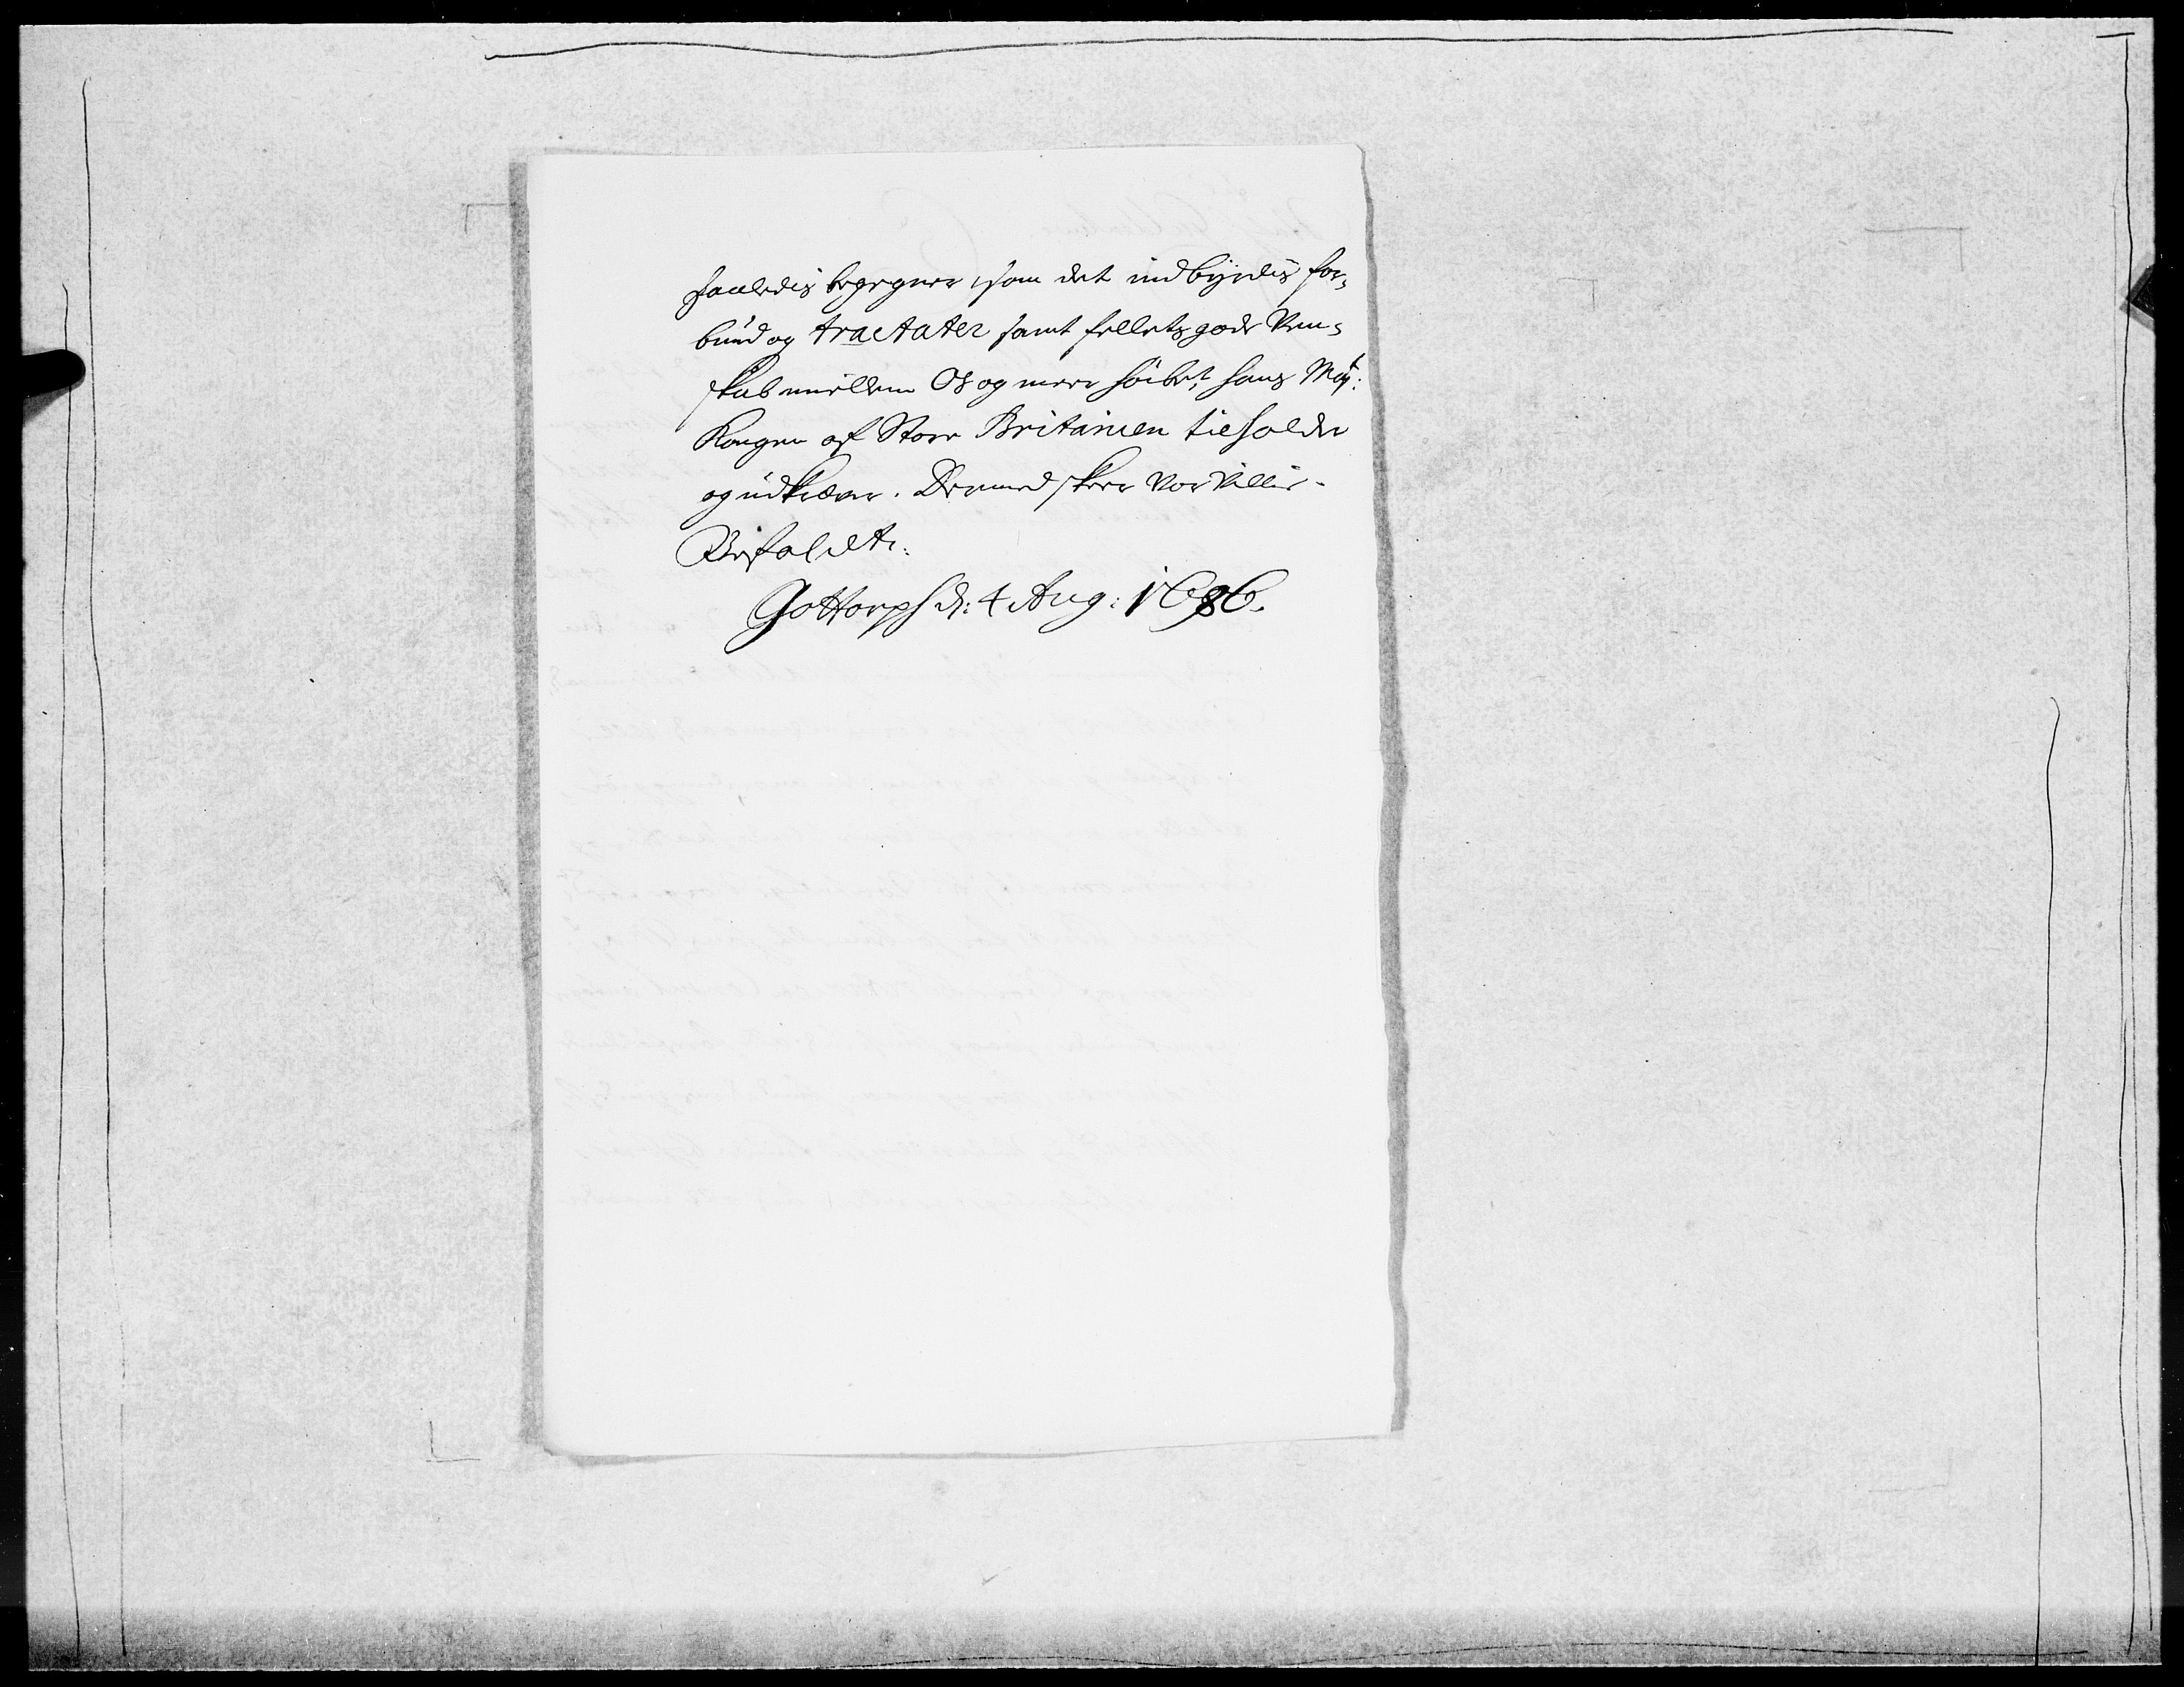 saaledis begegner, som det indbyrdis for-
bund og tractater samt sellets gode Ven-
skab imellem Os og meer höibe:te Hans May:t
Kongen af Store Britanien tilholder
og udkræver. Dermed skeer Vor Villie.
Befalendes.
Gottorph d: 4 Aug: 1686.